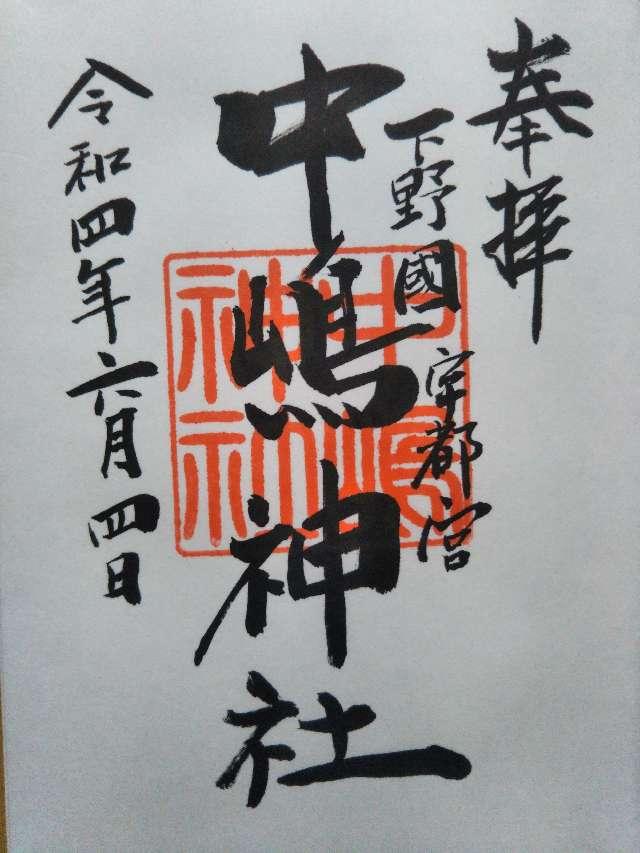 奉拝
下野國 宇都宮
中嶋神社
中嶋
神社
令和四年六月四日